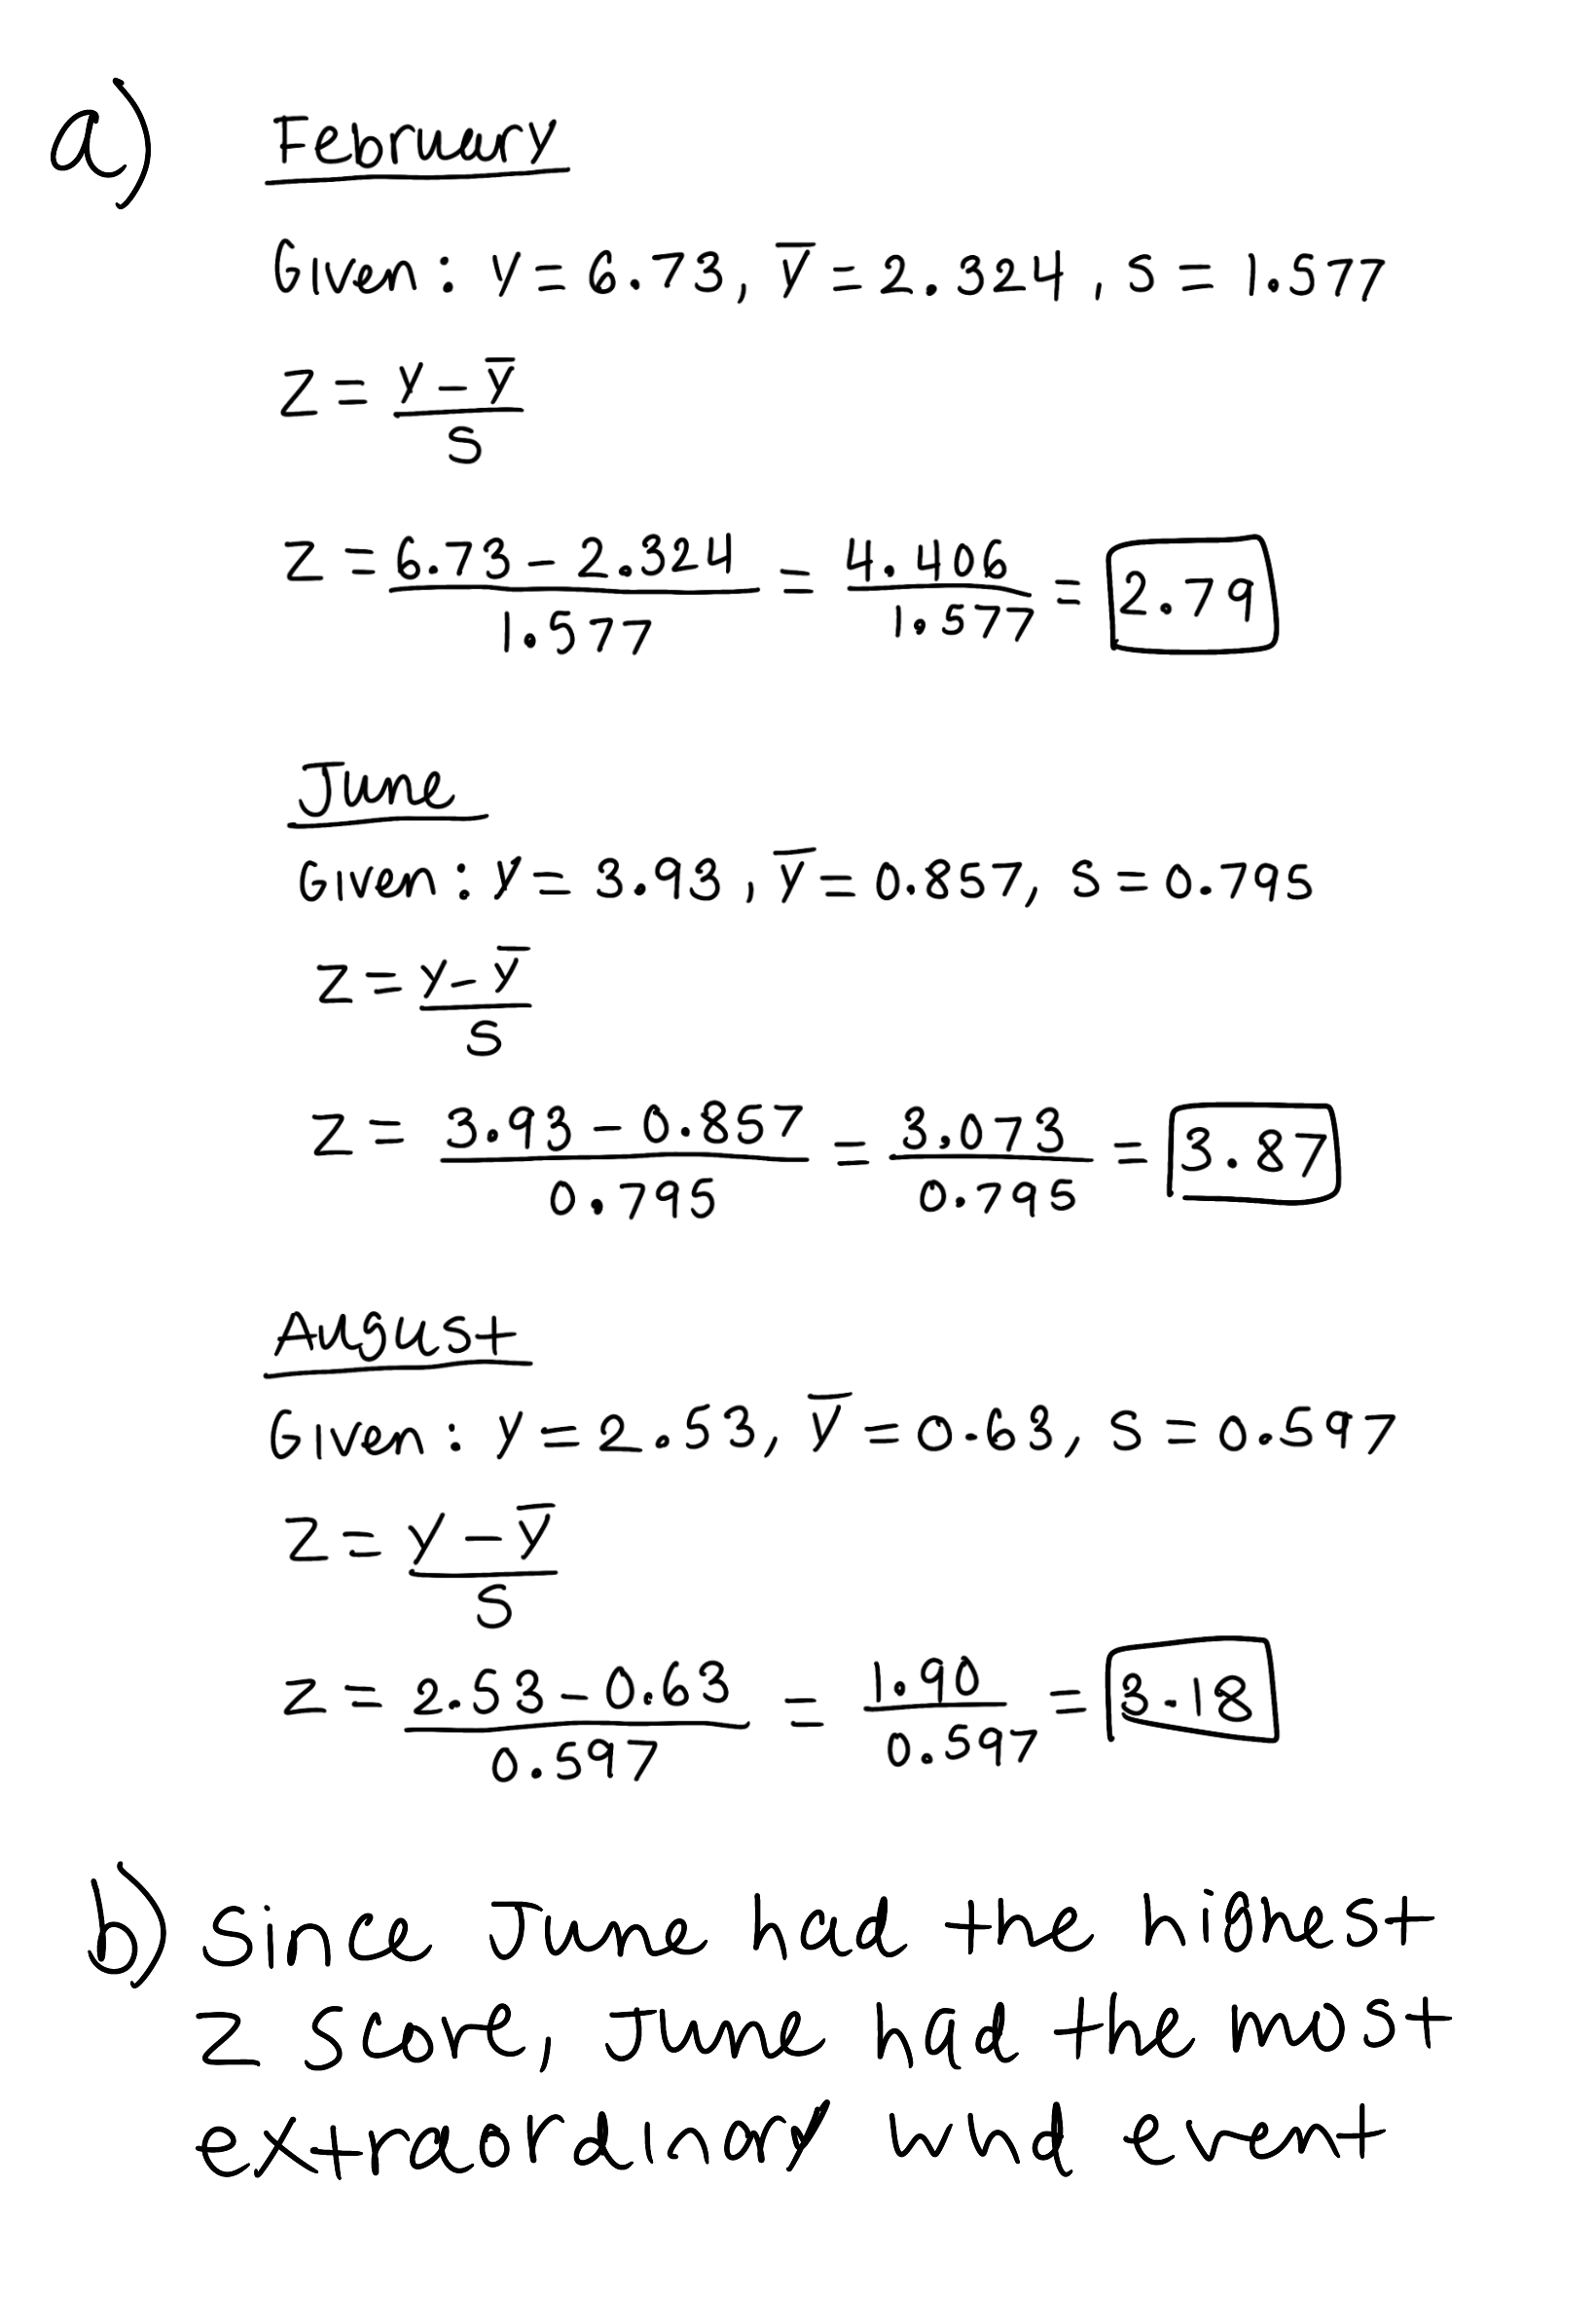 a) February
Given: y = 6.73, ȳ = 2.324, s = 1.577
z = (y - ȳ) / s
z = (6.73 - 2.324) / 1.577 = 4.406 / 1.577 = 2.79
June
Given: y = 3.93, ȳ = 0.857, s = 0.795
z = (y - ȳ) / s
z = (3.93 - 0.857) / 0.795 = 3.073 / 0.795 = 3.87
August
Given: y = 2.53, ȳ = 0.63, s = 0.597
z = (y - ȳ) / s
z = (2.53 - 0.63) / 0.597 = 1.90 / 0.597 = 3.18
b) Since June had the highest
z score, June had the most
extraordinary wind event